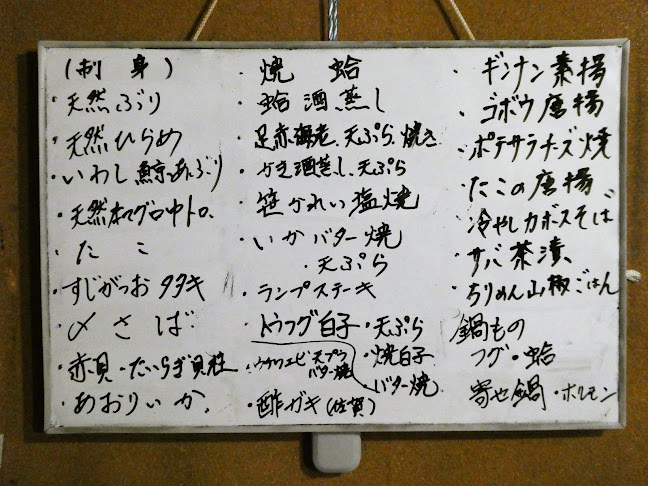 (刺身)
・天然ぶり
・天然ひらめ
・いわし・鯨・あぶり
・天然本マグロ中トロ、
・たこ
・すじがつおタタキ
・〆さば
・赤貝・たいらぎ貝柱
・あおりいか、
・焼蛤
・蛤酒蒸し
・足赤海老、天ぷら、焼き
・かき酒蒸し、天ぷら
・笹かれい塩焼
・いかバター焼
・天ぷら
・ランプステーキ
・トラフグ白子・天ぷら
・焼白子
・バター焼
・ウチワエビ・天プラ
バター焼
・酢ガキ(佐賀)
・ギンナン素揚
・ゴボウ唐揚
・ポテサラチーズ焼
・たこの唐揚
・冷やしカボスそば
・サバ茶漬、
・ちりめん山椒ごはん
鍋もの
フグ・蛤
寄せ鍋・ホルモン